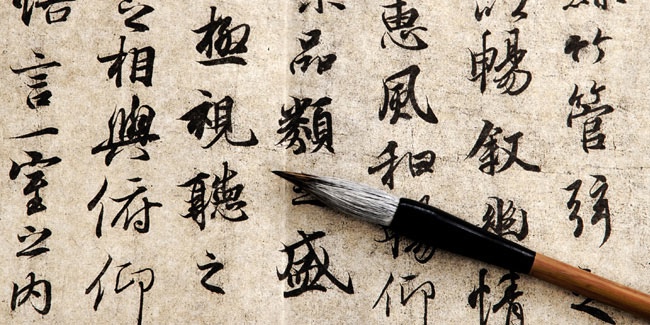 竹管弦之
以暢叙幽情
惠風和暢仰
察品類之盛
極視聽之
之相與俯仰
悟言一室之内